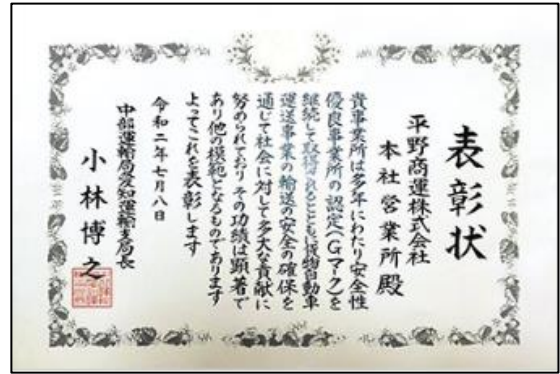 表彰状
平野商運株式会社
本社営業所殿
貴事業所は多年にわたり安全性
優良事業所の認定(Gマーク)を
継続して取得されるとともに貨物自動車
運送事業の輸送の安全の確保を
通じて社会に対して多大な貢献に
努められておりその功績は顕著で
あり他の模範となるものであります
よってこれを表彰します
令和二年七月八日
中部運輸局愛知運輸支局長
小林博之